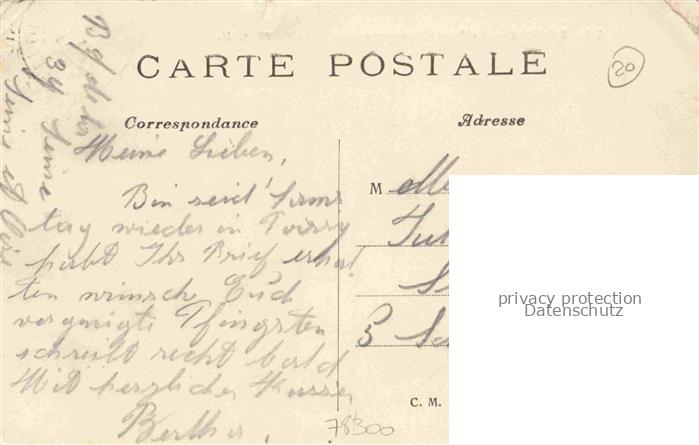 CARTE POSTALE
20
Correspondance
Adresse
Meine Lieben,
Bin seid Sams
tag wieder in Poissy
habt Ihr Brief erhal
ten wünsch Euch
vergnügte Pfingsten
schreibt recht bald
Mit herzlichen Küssen
Bertha.
39
Seine et Oise
M
3
C. M.
78300
privacy protection
Datenschutz